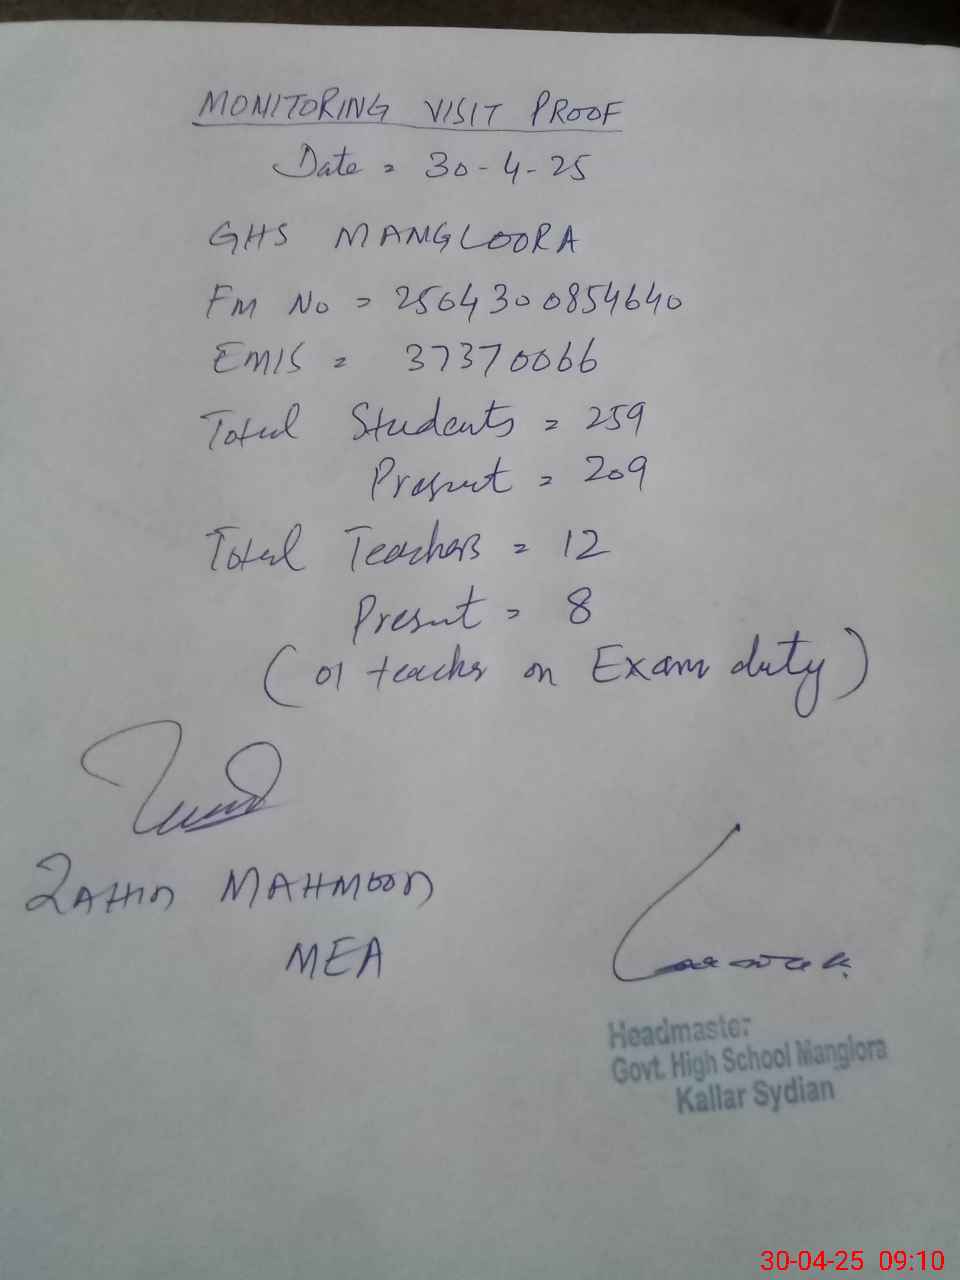 MONITORING VISIT PROOF
Date = 30-4-25
GHS MANGLOORA
FM No = 2504300854640
EMIS = 37370066
Total Students = 259
Present = 209
Total Teachers = 12
Present = 8
(01 teacher on Exam duty)
ZAHID MAHMOOD
MEA
Headmaster
Govt. High School Manglora
Kallar Sydian
30-04-25 09:10